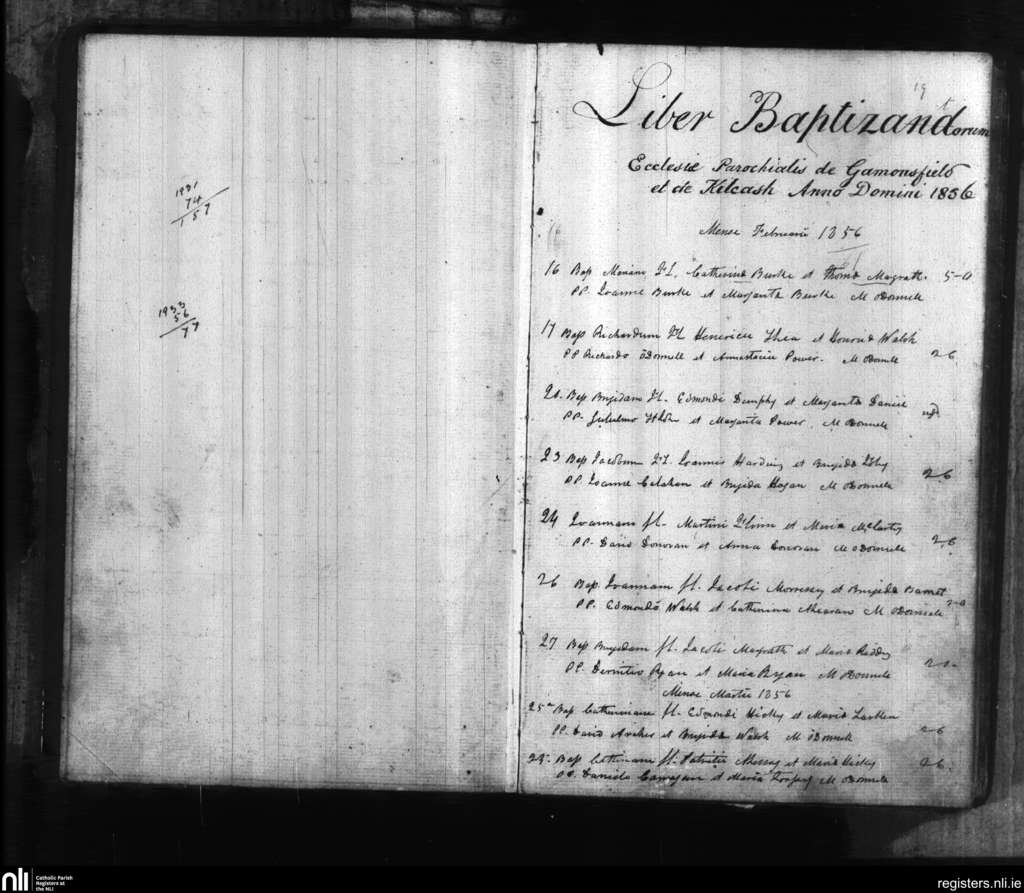 1931
74
157
1933
56
77
19
Liber Baptizandorum
t
Ecclesiæ Parochialis de Gamonsfield
et de Kilcash Anno Domini 1856
Mense Februarii 1856
16 Bap Mariam Fl. Catherina Burke et Thoma Magrath. 5-0
PP. Joanne Burke et Margarita Burke M ODonnell
17 Bap Richardum Fl et Honora Walsh
PP Richardo ODonnell et Power. M ODonnell 2 6
Bap Brigidam Fl. Edmondi Dunphy et Margarita
PP. Gulielmo et Margarita Power. M ODonnell
23 Bap Jacobum Fl. Joannis Harding et Brigida
PP Joanne et Brigida Hogan M ODonnell 2 6
24 Joannam fl. Martini et Maria McCarty
PP. David Donovan et Anna Donovan M ODonnell 2 6
26 Bap. Joannam fl. Jacobi Morrissey et Brigida
PP. Edmondo Walsh et Catherina M ODonnell
27 Bap Brigidam fl. Jacobi Magrath et Maria
PP. Ryan et Maria Ryan M ODonnell
Mense Martii 1856
25 Bap Catherinam fl. Edmondi Hickey et Maria
PP. David et Brigida Walsh M ODonnell 2 6
25 Bap Catherinam fl. Patritii et Maria Hickey 2 6.
PP. Daniele et Maria M ODonnell
nli
Catholic Parish
Registers at
the NLI
registers.nli.ie